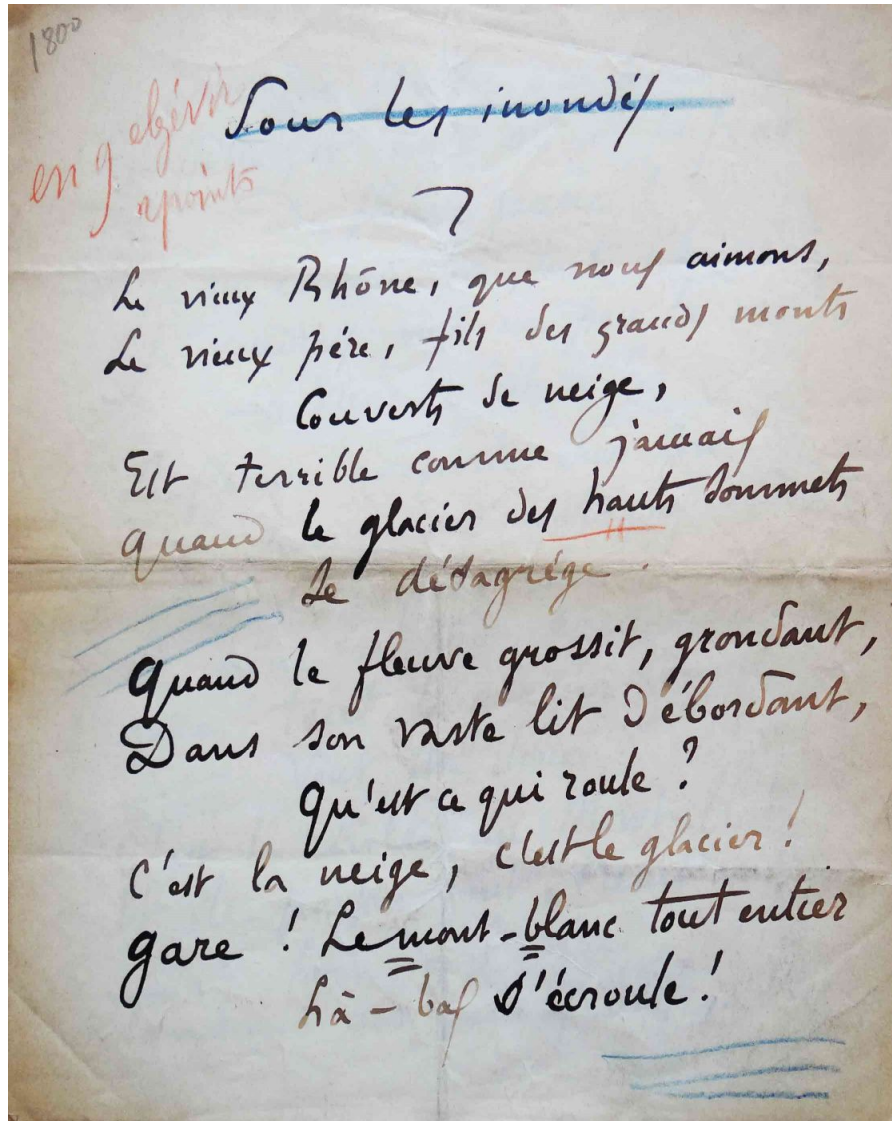 1800
en 9 elzévir
2 points
Pour les inondés.
Le vieux Rhône, que nous aimons,
Le vieux père, fils des grands monts
Couverts de neige,
Est terrible comme jamais
Quand le glacier des hauts sommets
Se désagrége.
Quand le fleuve grossit, grondant,
Dans son vaste lit débordant,
Qu'est ce qui roule ?
C'est la neige, c'est le glacier !
gare ! Le mont-blanc tout entier
Là-bas s'écroule !